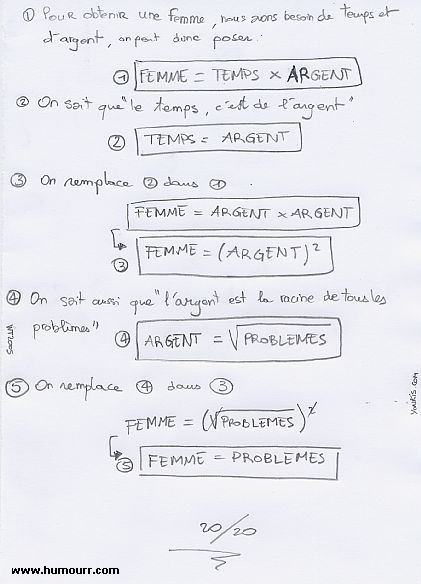 ① Pour obtenir une femme, nous avons besoin de temps et
d'argent, on peut donc poser :
① FEMME = TEMPS × ARGENT
② On sait que "le temps, c'est de l'argent"
② TEMPS = ARGENT
③ On remplace ② dans ①
FEMME = ARGENT × ARGENT
③ FEMME = (ARGENT)²
④ On sait aussi que "l'argent est la racine de tous les
problèmes"
④ ARGENT = √PROBLEMES
⑤ On remplace ④ dans ③
FEMME = (√PROBLEMES)²
⑤ FEMME = PROBLEMES
20/20
www.humourr.com